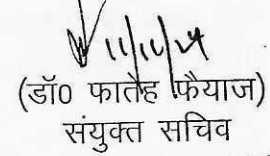 11/11/24
(डॉ0 फातेह फैयाज)
संयुक्त सचिव